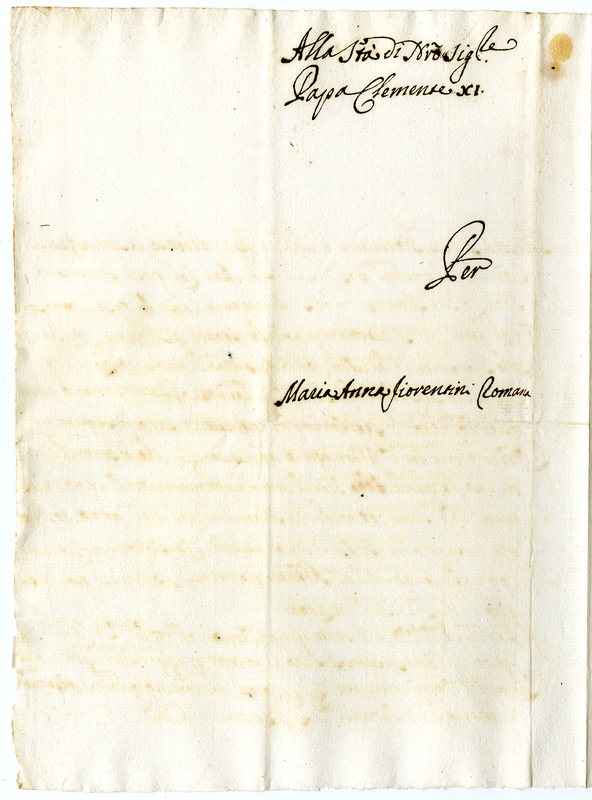 Alla Stà di Nro Sigre
Papa Clemente XI.
Per
Maria Anna Fiorentini Romana